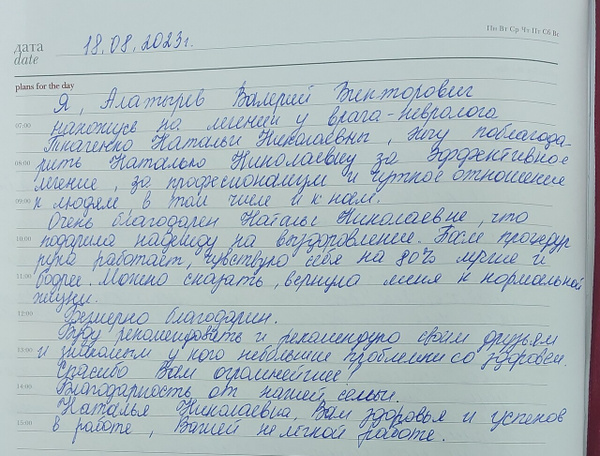 Пн Вт Ср Чт Пт Сб Вс
дата 18.08.2023г.
date
plans for the day
Я, Алатырев Валерий Викторович
07:00 нахожусь на лечении у врача-невролога
Ткаченко Натальи Николаевны, хочу поблагода-
08:00 рить Наталью Николаевну за эффективное
лечение, за професионализм и чуткое отношение
09:00 к людям в том числе и к нам.
Очень благодарен Наталье Николаевне, что
10:00 подарила надежду на выздоровление. После процедур
рука работает, чувствую себя на 80% лучше и
11:00 бодрее. Можно сказать, вернула меня к нормальной
жизни.
12:00 Безмерно благодарин.
Буду рекомендовать и рекомендую своим друзьям
13:00 и знакомым у кого небольшие проблемки со здоровьем.
Спасибо Вам огромнейшее!
14:00 Благодарность от нашей семьи.
Наталья Николаевна, Вам здоровья и успехов
15:00 в работе, Вашей нелёгкой работе.